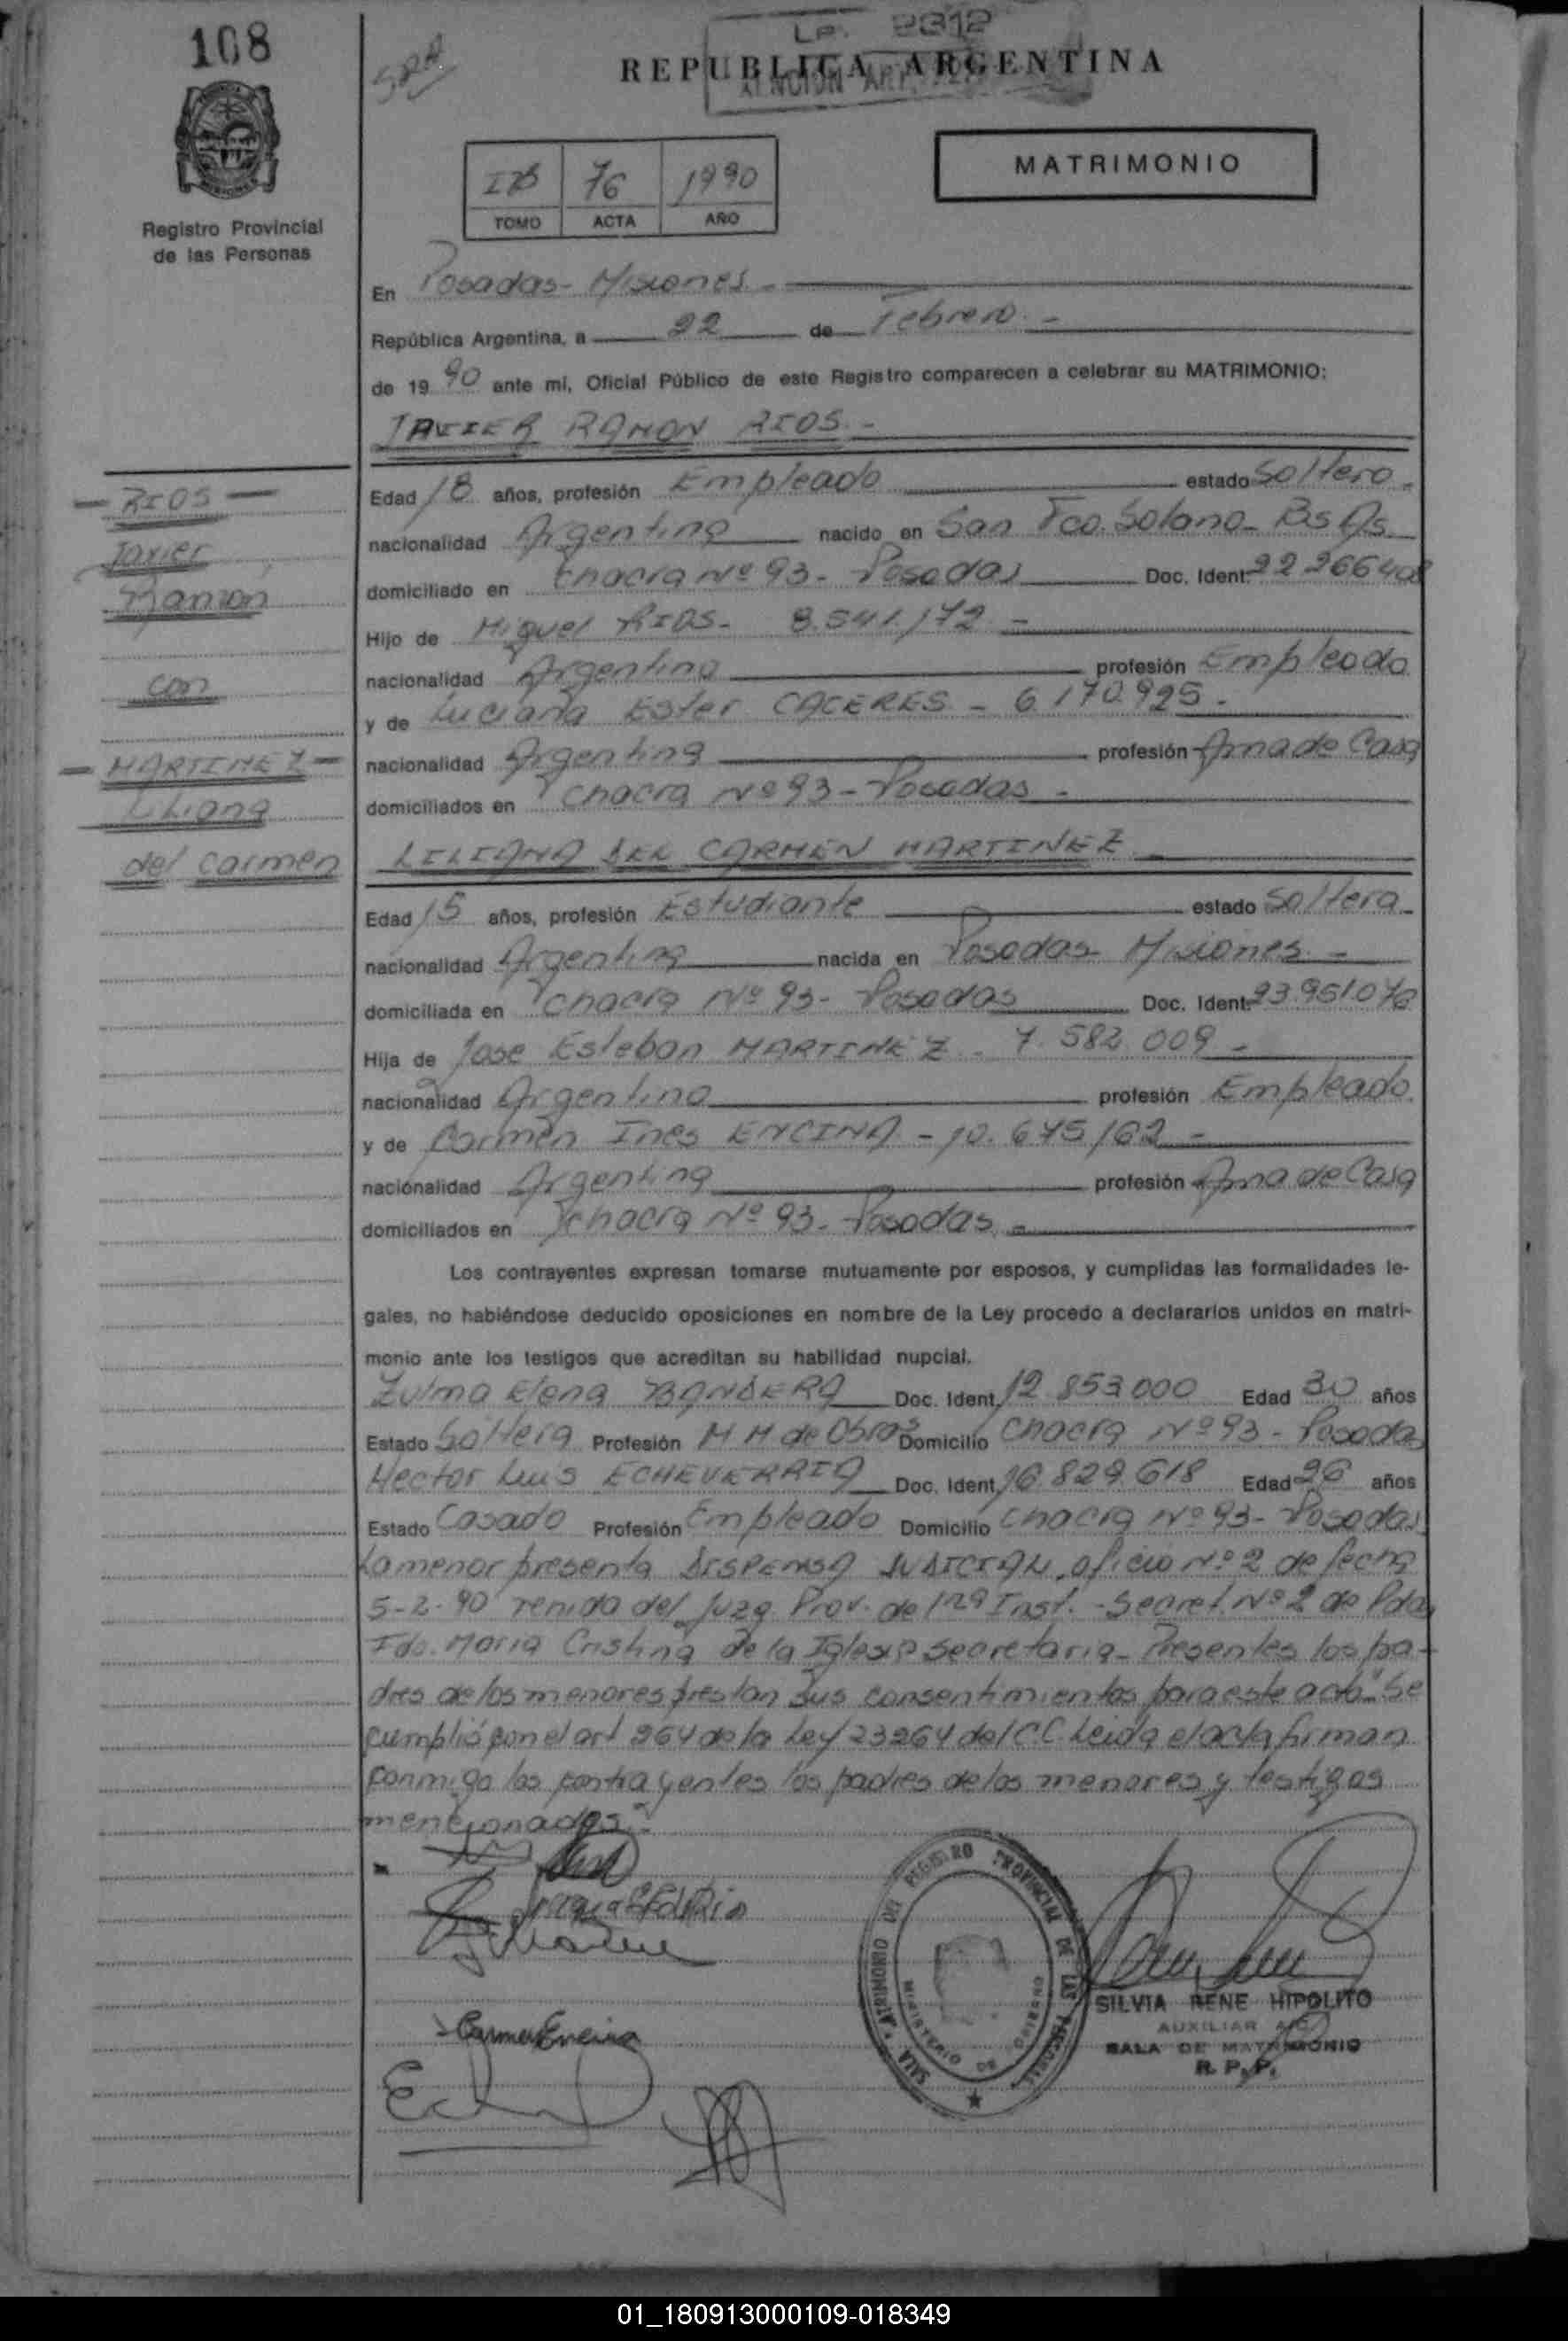 108
LP. 2312
REPUBLICA ARGENTINA
76 1990
TOMO ACTA AÑO
MATRIMONIO
Registro Provincial
de las Personas
En Posadas - Misiones -
República Argentina, a 22 de Febrero. -
de 1990 ante mí, Oficial Público de este Registro comparecen a celebrar su MATRIMONIO:
JAVIER RAMON RIOS. -
- RIOS -
Javier
Ramón
con
- MARTINEZ -
Liliana
del Carmen
Edad 18 años, profesión Empleado estado Soltero -
nacionalidad Argentina nacido en San Fco. Solano - Bs As
domiciliado en Chacra Nº 93 - Posadas Doc. Ident. 22 266408
Hijo de Miguel RIOS - 8.541.172 -
nacionalidad Argentina profesión Empleado
y de Luciana Ester CACERES - 6.170.925 -
nacionalidad Argentina profesión Ama de Casa
domiciliados en Chacra Nº 93 - Posadas -
LILIANA DEL CARMEN MARTINEZ -
Edad 15 años, profesión Estudiante estado Soltera -
nacionalidad Argentina nacida en Posadas - Misiones. -
domiciliada en Chacra Nº 93 - Posadas Doc. Ident. 23.951.076
Hija de Jose Esteban MARTINEZ - 7.582.009 -
nacionalidad Argentina profesión Empleado
y de Carmen Ines ENCINA - 10.675.162 -
nacionalidad Argentina profesión Ama de Casa
domiciliados en Chacra Nº 93 - Posadas. -
Los contrayentes expresan tomarse mutuamente por esposos, y cumplidas las formalidades le-
gales, no habiéndose deducido oposiciones en nombre de la Ley procedo a declararlos unidos en matri-
monio ante los testigos que acreditan su habilidad nupcial.
Zulma Elena BANDERA Doc. Ident. 12.853.000 Edad 30 años
Estado Soltera Profesión M M de Obras Domicilio Chacra Nº 93 - Posadas
Hector Luis ECHEVERRIA Doc. Ident. 16.829.618 Edad 26 años
Estado Casado Profesión Empleado Domicilio Chacra Nº 93 - Posadas
La menor presenta DISPENSA JUDICIAL, oficio Nº 2 de fecha
5-2-90 venida del Juzg. Prov. de 1ra Inst. - Secret. Nº 2 de Pdas
Fdo. Maria Cristina de la Iglesia Secretaria - Presentes los pa-
dres de los menores prestan sus consentimientos para este acto." Se
cumplió con el art 264 de la Ley 23264 del C.C. Leida el acta firman
conmigo los contrayentes los padres de los menores y testigos
mencionados -
Carmen Encina
SALA MATRIMONIO DEL REGISTRO PROVINCIAL DE LAS PERSONAS
MINISTERIO DE GOBIERNO
SILVIA RENE HIPOLITO
AUXILIAR
SALA DE MATRIMONIO
R. P. P.
01_180913000109-018349